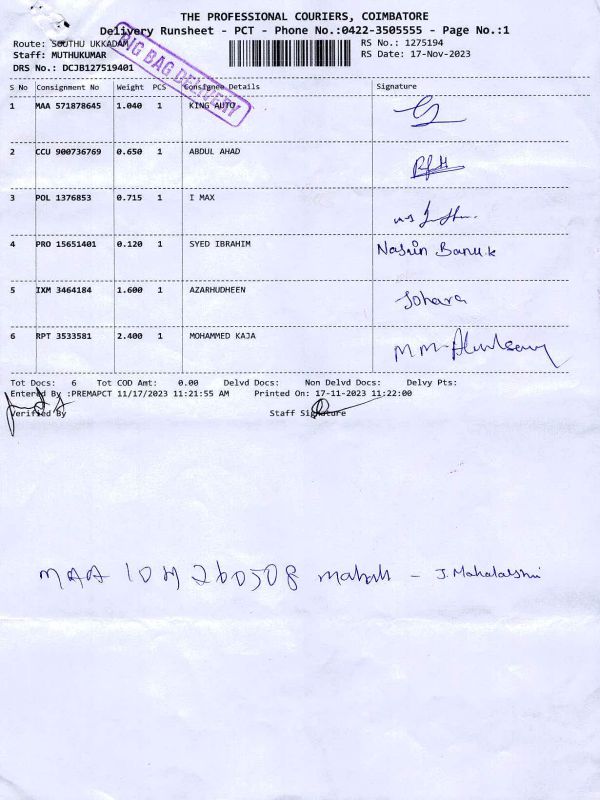 THE PROFESSIONAL COURIERS, COIMBATORE
Delivery Runsheet - PCT - Phone No.:0422-3505555 - Page No.:1
Route: SOUTHU UKKADAM RS No.: 1275194
Staff: MUTHUKUMAR RS Date: 17-Nov-2023
DRS No.: DCJB127519401
BIG BAG DELIVERY
S No Consignment No Weight PCS Consignee Details Signature
1 MAA 571878645 1.040 1 KING AUTO
2 CCU 900736769 0.650 1 ABDUL AHAD
3 POL 1376853 0.715 1 I MAX
4 PRO 15651401 0.120 1 SYED IBRAHIM Nasrin Banu.k
5 IXM 3464184 1.600 1 AZARHUDHEEN Johara
6 RPT 3533581 2.400 1 MOHAMMED KAJA M.M.
Tot Docs: 6 Tot COD Amt: 0.00 Delvd Docs: Non Delvd Docs: Delvy Pts:
Entered By :PREMAPCT 11/17/2023 11:21:55 AM Printed On: 17-11-2023 11:22:00
Verified By Staff Signature
MAA - J. Mahalakshmi